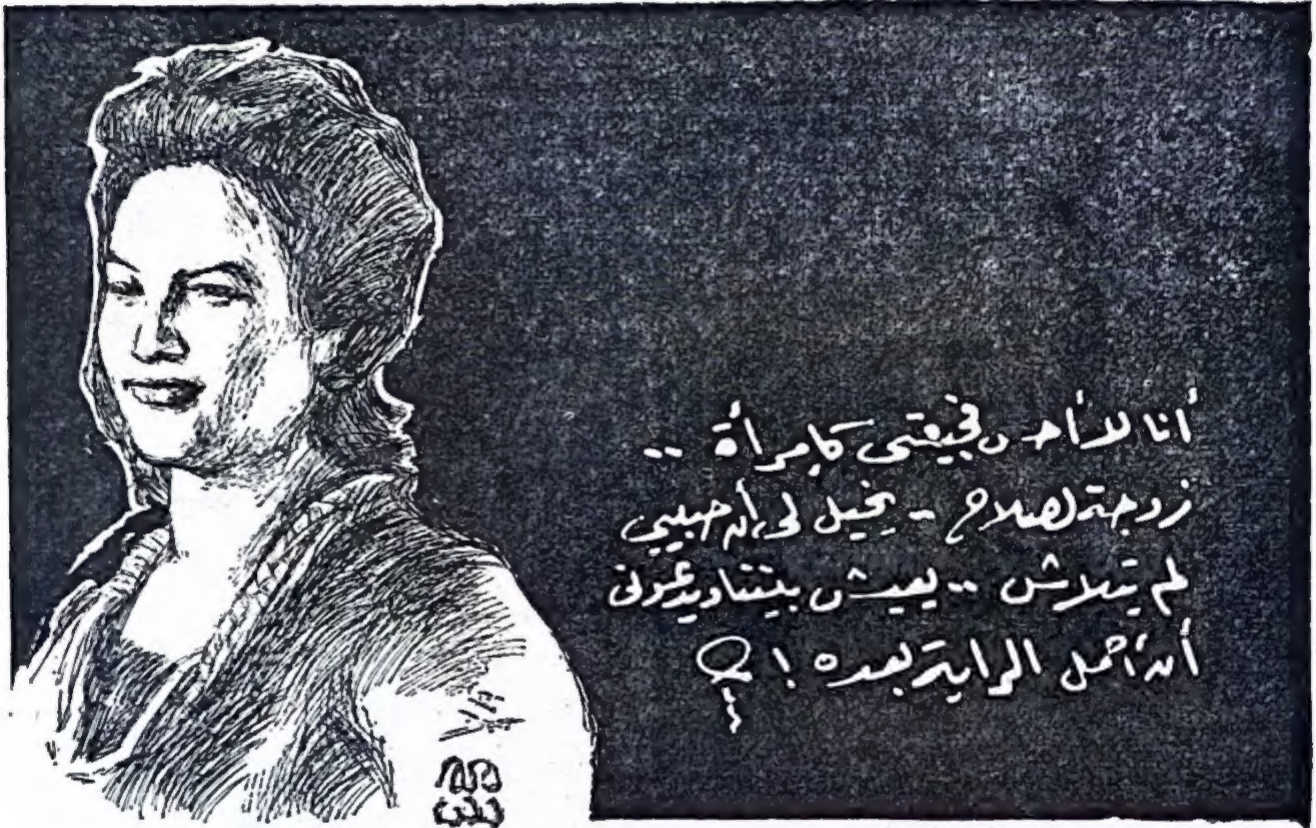 أنا لا أحس فجيعتى كإمرأة ..
زوجة لصلاح .. يخيل لى أن حبيبى
لم يتلاش .. يعيش بيننا ويدعونى
أن أحمل الراية بعده !